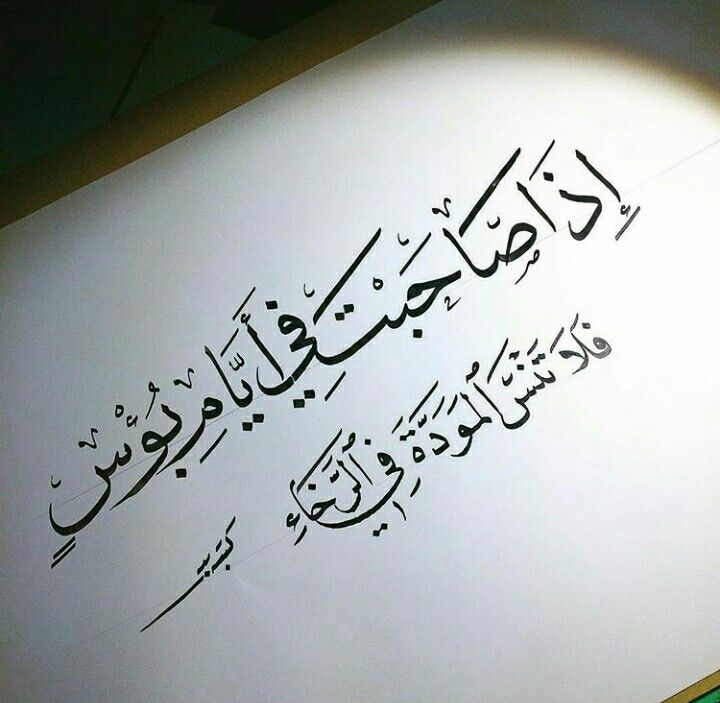 إِذَا صَاحَبْتَ فِي أَيَّامِ بُؤْسٍ
فَلَا تَنْسَ ٱلْمَوَدَّةَ فِي ٱلرَّخَاءِ